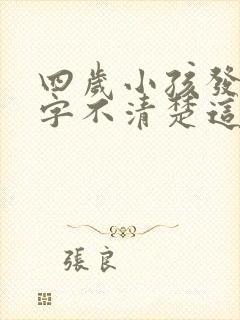 四歲小孩發
字不清楚這
張良